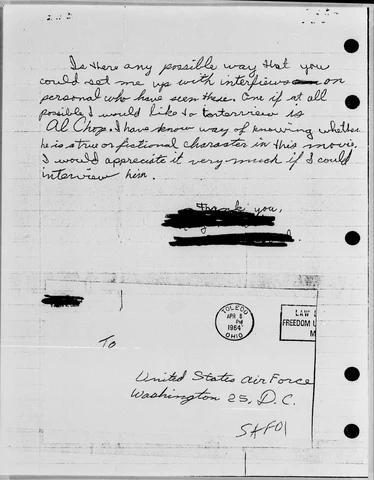 Is there any possible way that you
could set me up with interfiews on
personal who have seen these. One if at all
possible I would like to interview is
Al Chop. I have know way of knowing whether
he is a true or fictional character in this movie.
I would appreciate it very much if I could
interview him.
Thank you,
TOLEDO
APR 8
PM
1964
OHIO
LAW
FREEDOM
M
To
United States Air Force
Washington 25, D.C.
SAFOI